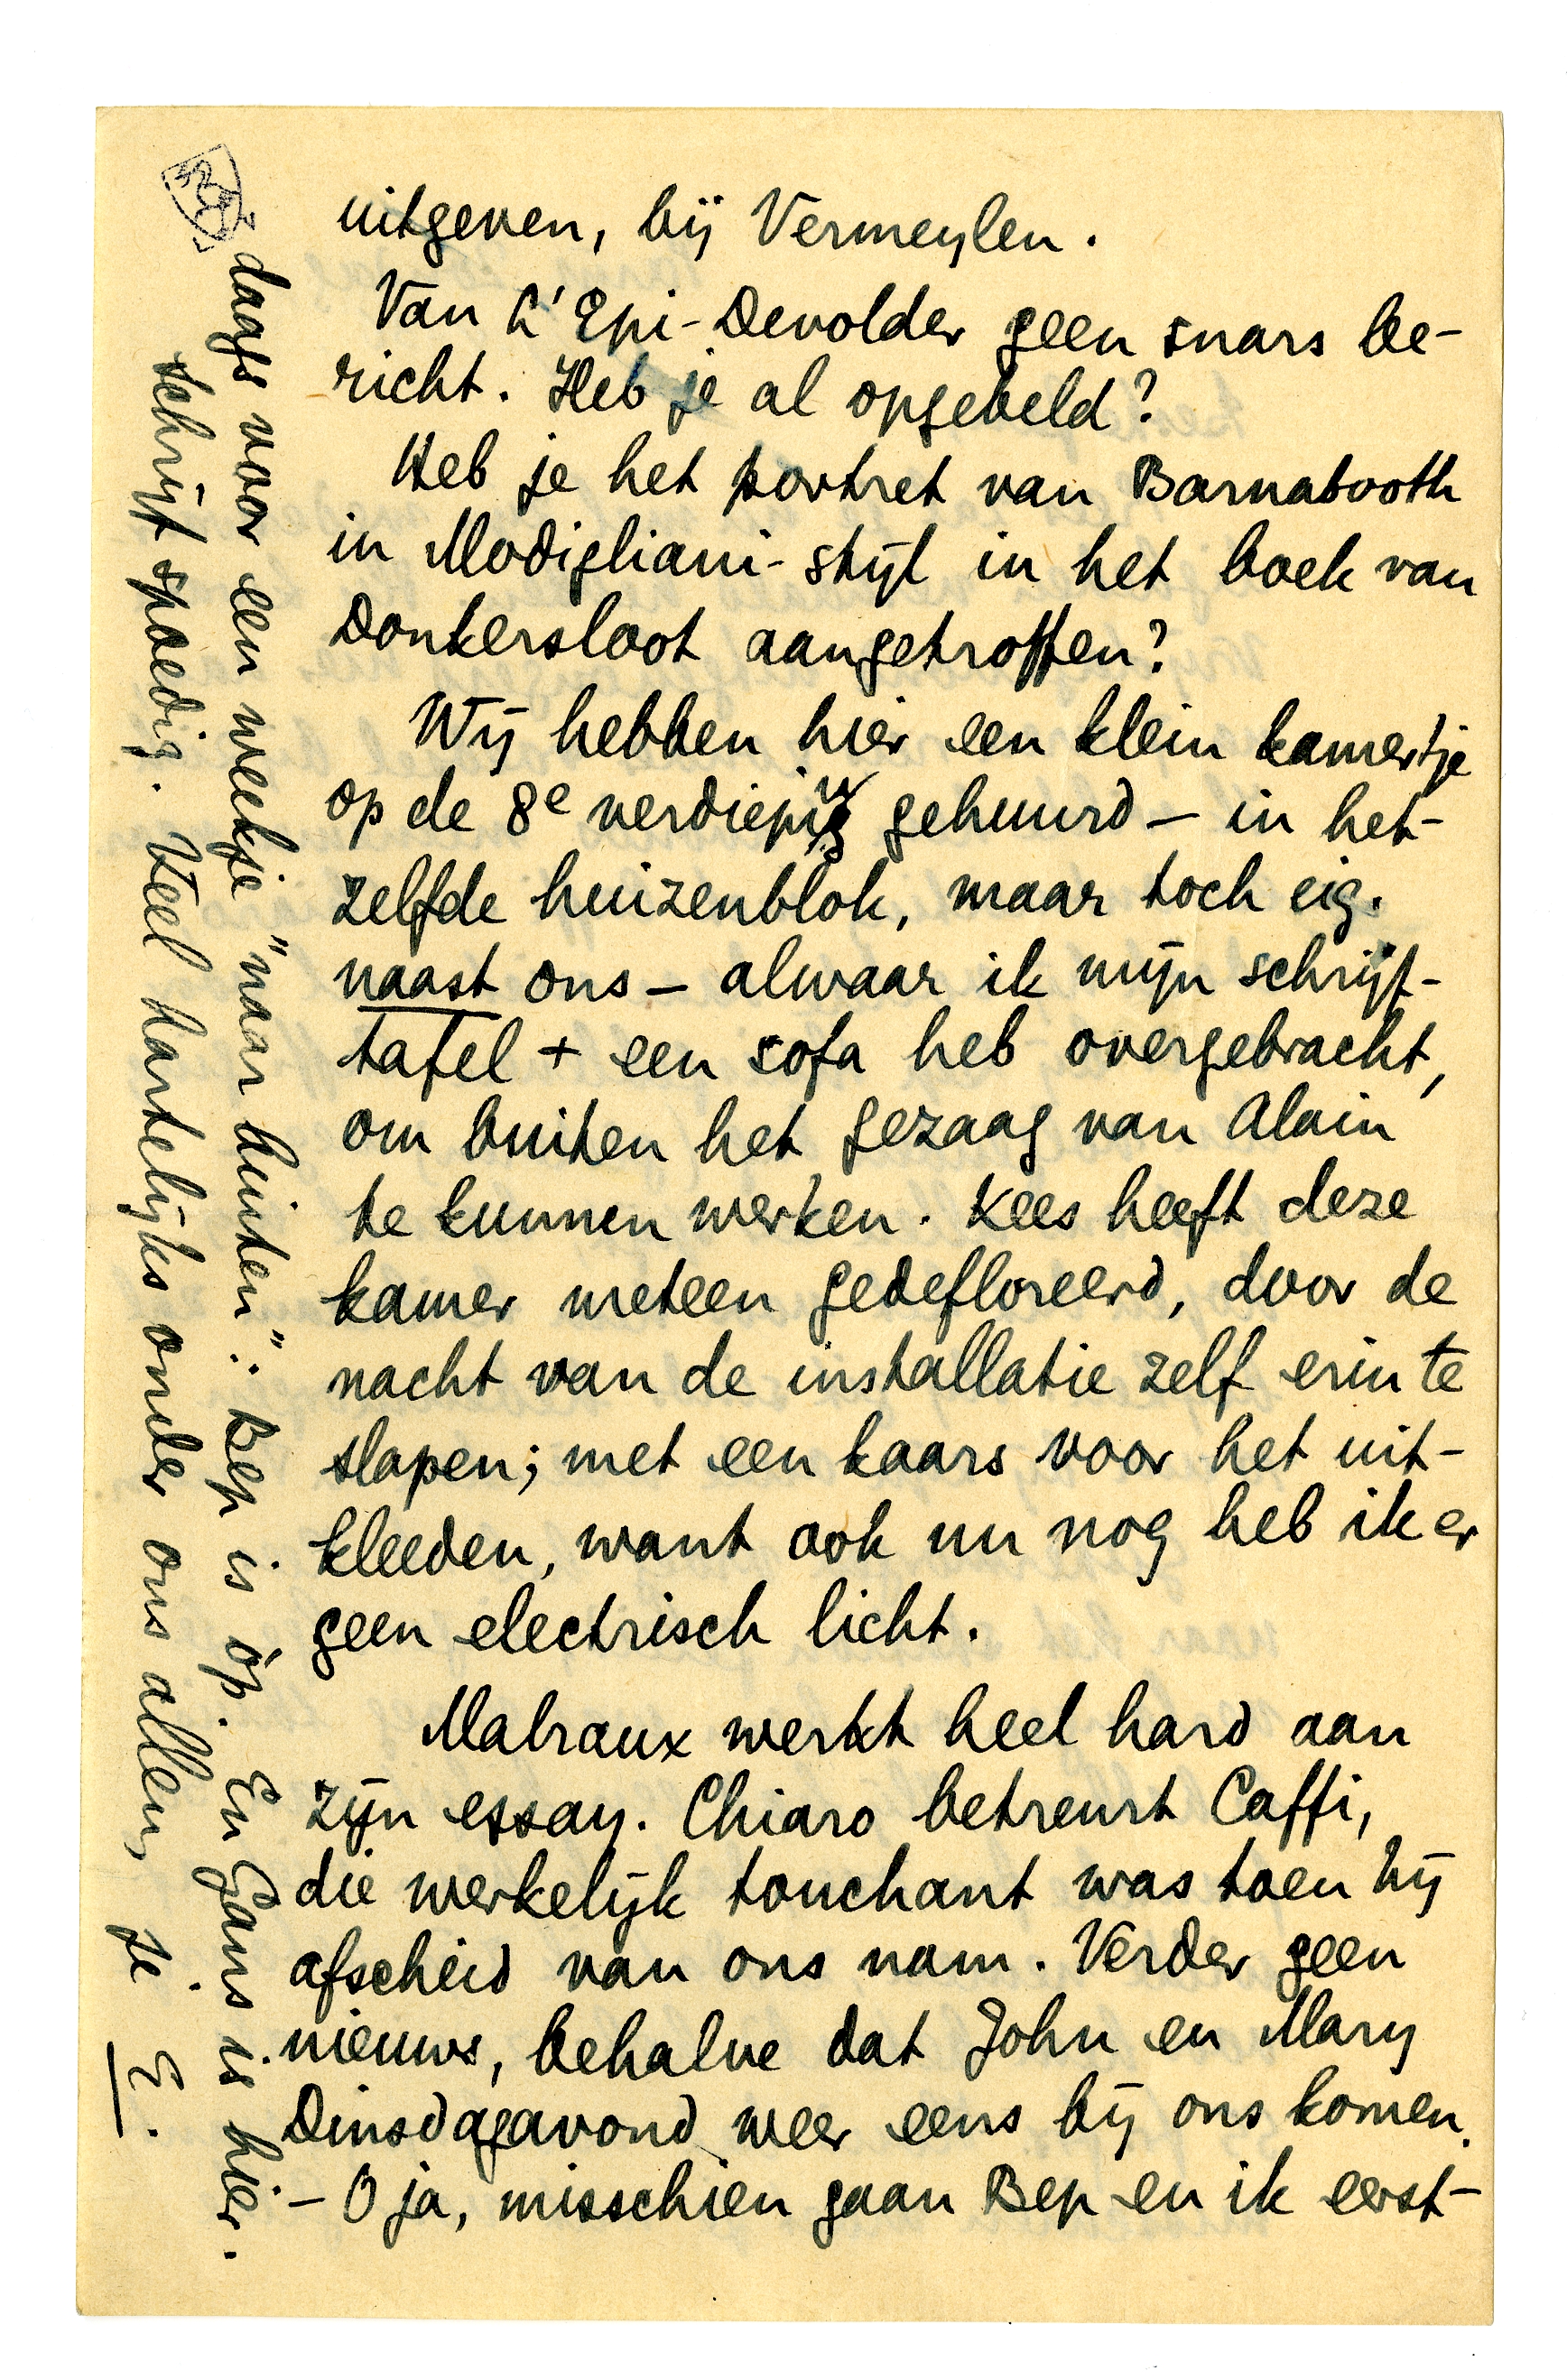 uitgeven, bij Vermeylen.
Van L'Epi-Devolder geen snars be-
richt. Heb je al opgebeld?
Heb je het portret van Barnabooth
in Modigliani-stijl in het boek van
Donkersloot aangetroffen?
Wij hebben hier een klein kamertje
op de 8e verdieping gehuurd – in het-
zelfde huizenblok, maar toch eig.
naast ons – alwaar ik mijn schrijf-
tafel + een sofa heb overgebracht,
om buiten het gezaag van Alain
te kunnen werken. Kees heeft deze
kamer meteen gedefloreerd, door de
nacht van de installatie zelf erin te
slapen; met een kaars voor het uit-
kleeden, want ook nu nog heb ik er
geen electrisch licht.
Malraux werkt heel hard aan
zijn essay. Chiaro betreurt Caffi,
die werkelijk touchant was toen hij
afscheid van ons nam. Verder geen
nieuws, behalve dat John en Mary
Dinsdagavond weer eens bij ons komen.
– O ja, misschien gaan Bep en ik eerst-
daags voor een weekje "naar buiten": Bep is óp. En Gans is hier.
Schrijf spoedig. Veel hartelijks onder ons allen, je E.